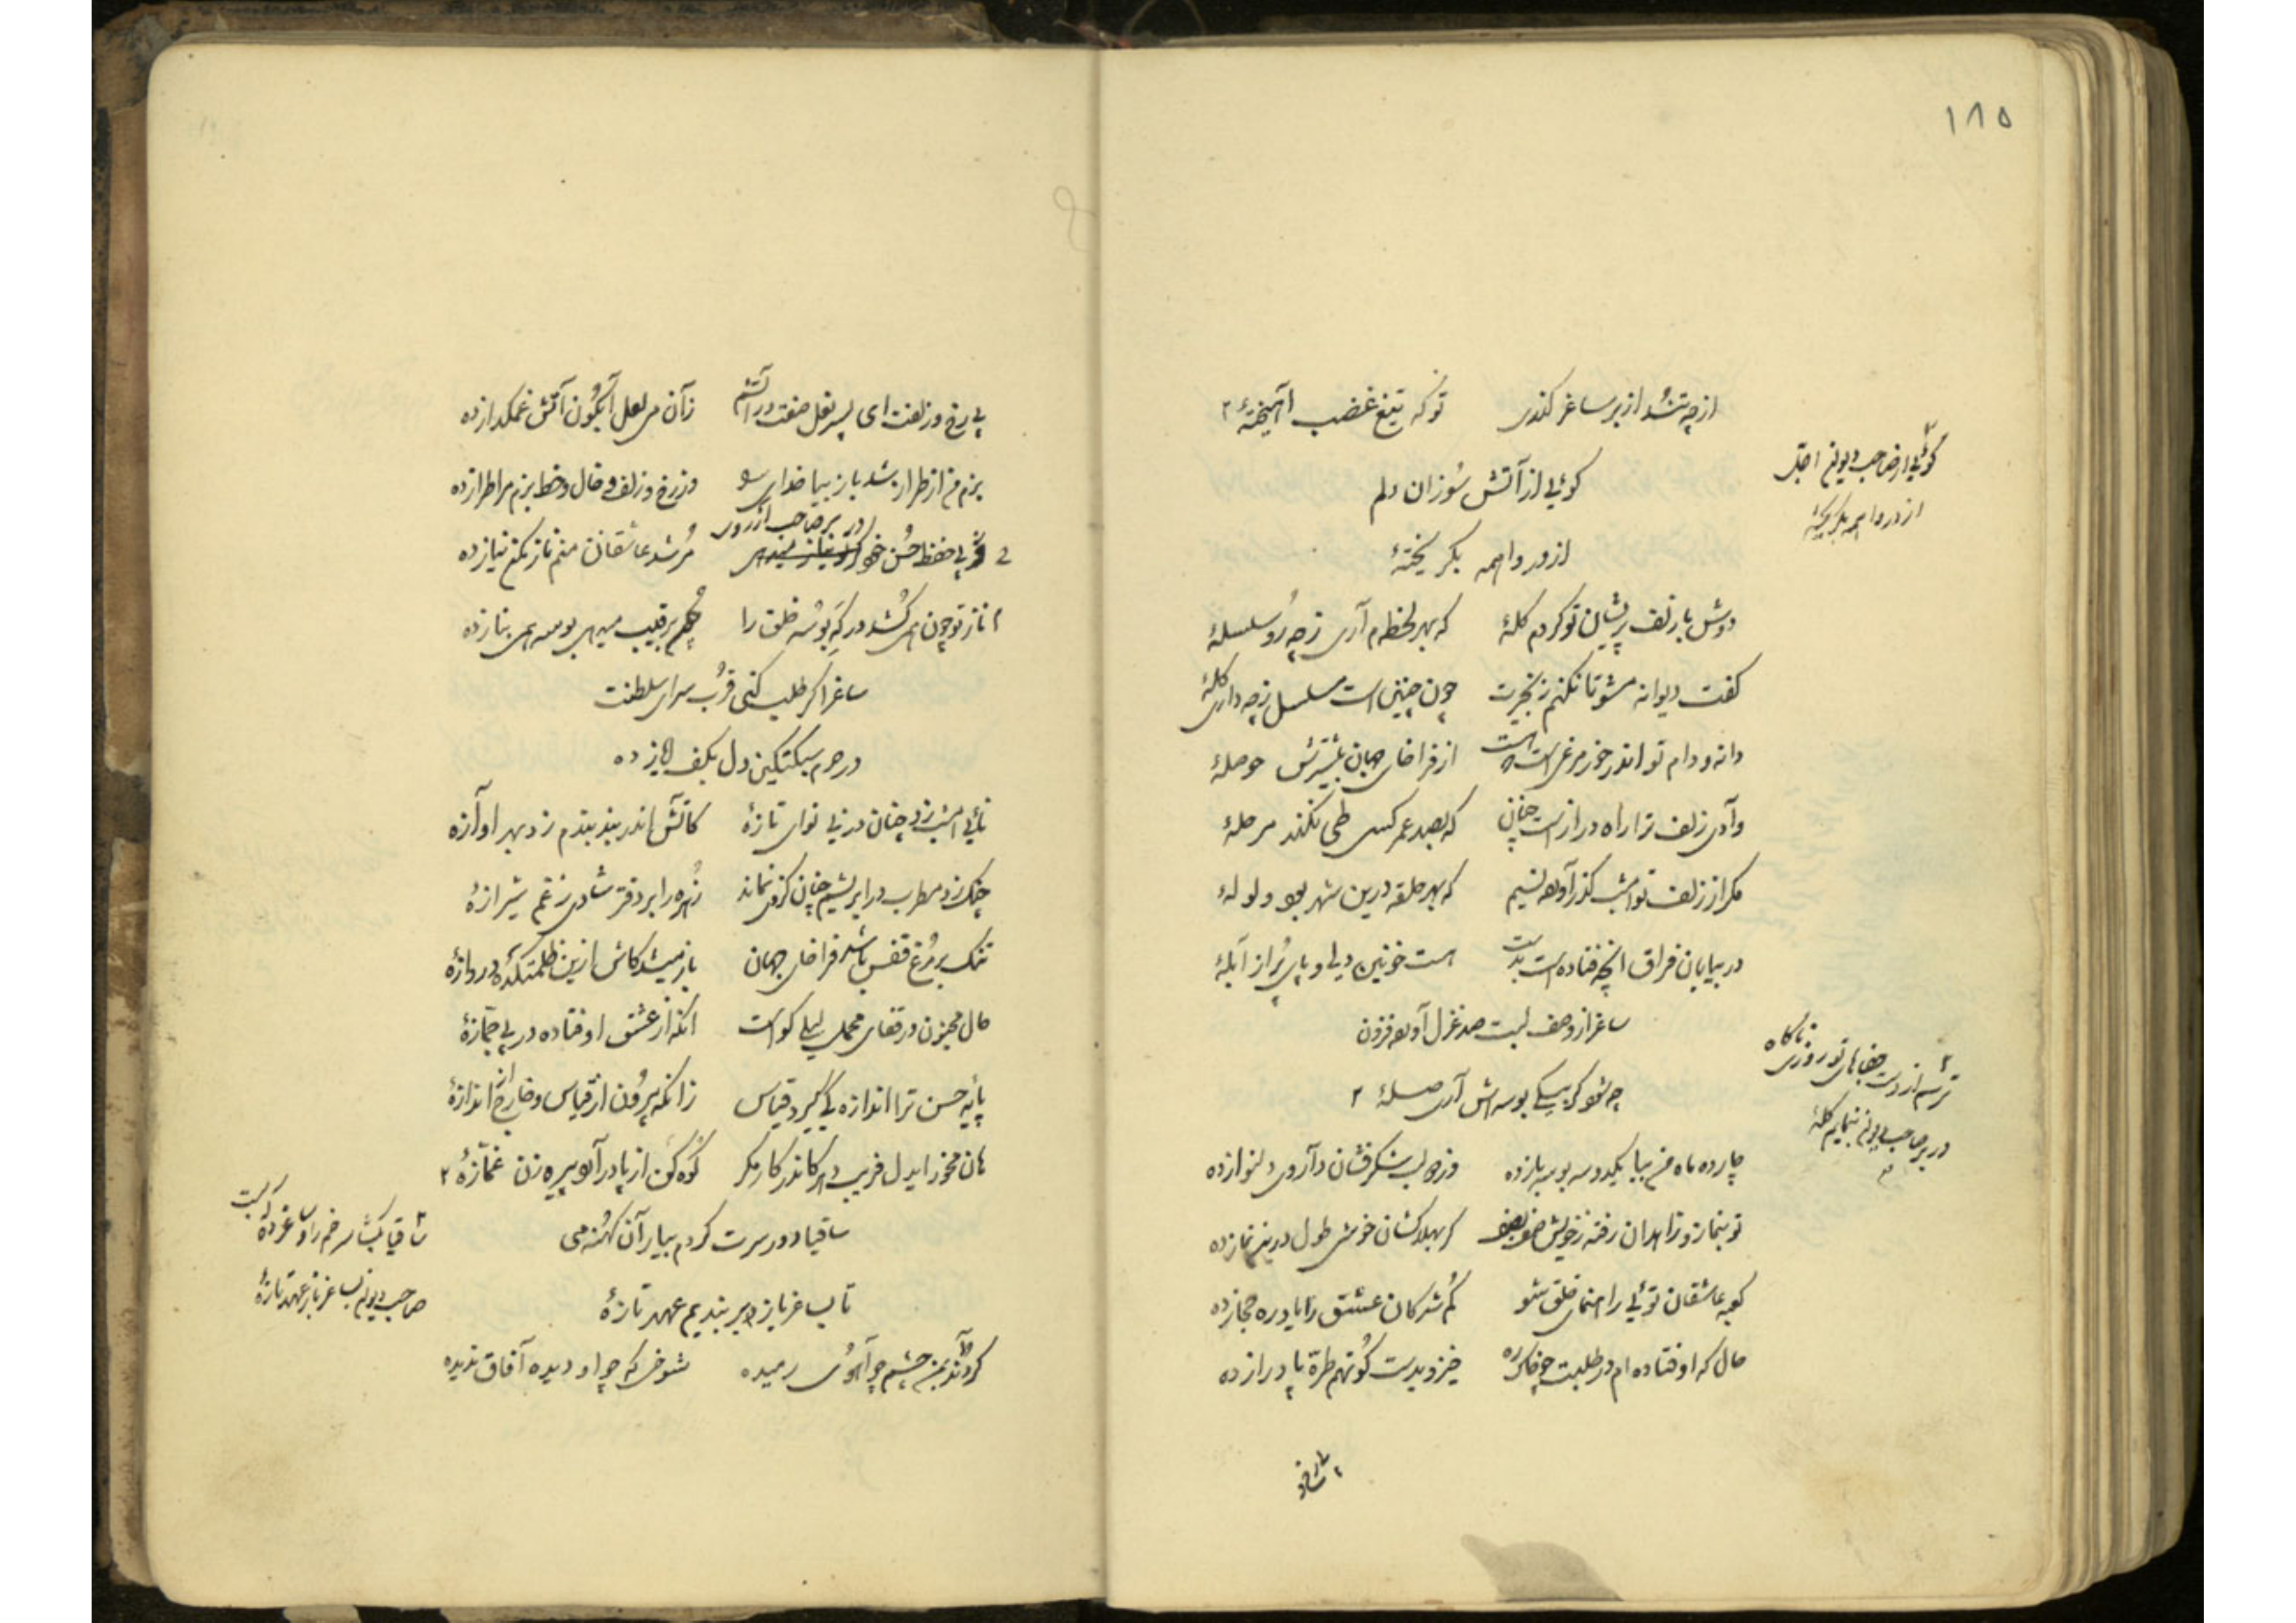 ۱۸۵
از چه تند از بر ساغر گذری تو که تیغ غضب آهیخته‌ٔ ۲
گوئی از آتش سوزان دلم
از در واهمه بگریخته‌ٔ
گوئی از صاحب دیوان اجل
از در واهمه بگریخته‌ٔ
دوش با زلف پریشان تو کردم گلهٔ که بهر لحظه‌ام آری ز چه رو سلسلهٔ
گفت دیوانه مشو تا نکنم زنجیرت چون چنین است مسلسل ز چه داری گلهٔ
دانه و دام تو اندر خور مرغی است که هست از فراخای جهان بیشترش حوصلهٔ
وادی زلف ترا راه دراز است چنان که بصد عمر کسی طی نکند مرحلهٔ
مگر از زلف تو امشب گذر آورد نسیم که بهر حلقه درین شهر بود ولولهٔ
در بیابان فراق آنچه فتاده است بدست هست خونین دلی و پای پر از آبلهٔ
ساغر از وصف لبت صد غزل آورد فزون
چه شود گر بیکی بوسه‌اش آری صلهٔ ۲
ترسم از دست جفاهای تو روزی ناگاه
در بر صاحب دیوان بنمایم گلهٔ
چارده ماه من بیا یکدو سه بوسه باز ده وز دو لب شکرفشان داروی دلنواز ده
تو بنماز و زاهدان رفته ز خویش
کعبه عاشقان توئی راهنمای خلق شو گم شدگان عشق را یاد ره حجاز ده
حال که اوفتاده‌ام در طلبت چو خاک ره خیز و بدست کوتهم طرهٔ پا دراز ده
بی رخ و زلفت ای پسر نعل صفت در آتشم زآن می لعل آبگون آتش غمگداز ده
بزم من از طراز شد باز بیا خدای را وز رخ و زلف و خال و خط بزم مرا طراز ده
در بر صاحب از روی
از پی حفظ حسن خود مرشد عاشقان منم ناز بکن نیاز ده
ناز تو چون همی کشد درگه بوسه خلق را حکم برقیب میدهی بوسه همی بناز ده
ساغر اگر طلب کنی قرب سرای سلطنت
در حرم سبکتکین دل بکف ایاز ده
نائی امشب زد چنان در نی نوای تازهٔ کآتش اندر بند بندم زد بهر آوازه
چنگ زد مطرب در ابریشم چنان کز وی نماند زهره را بر دفتر شادی ز غم شیرازهٔ
تنگ بر مرغ قفس باشد فراخای جهان باز میشد کاش ازین ظلمتکده دروازهٔ
حال مجنون در قفای محمل لیلی نکو است آنکه از عشق اوفتاده در پی جمّازهٔ
پایه حسن ترا اندازه کی گیرد قیاس زانکه بیرون از قیاس و خارج از اندازهٔ
هان مخور ایدل فریب دهر کاندر کار مکر کوه کن از پا درآرد پیره زن غمّازهٔ ۲
ساقیا دور سرت گردم بیار آن کهنه می
تا بساغر باز دیر بندیم عهد تازهٔ
ساقیا بگشا سر خم را
صاحب دیوان بساغر باز عهد تازهٔ
کردند بمن چشم چو آهوی رمیده شوخی که چو او دیده آفاق ندیده